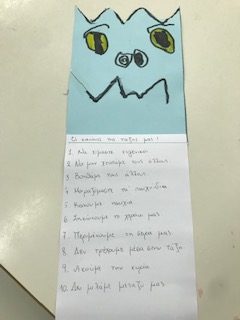 Οι κανόνες της τάξης μας!
1. Να είμαστε ευγενικοί
2. Να μην χτυπάμε τους άλλους
3. Βοηθάμε τους άλλους
4. Μοιραζόμαστε τα παιχνίδια
5. Κάνουμε ησυχία
6. Σηκώνουμε το χεράκι μας
7. Περιμένουμε τη σειρά μας
8. Δεν τρέχουμε μέσα στην τάξη
9. Ακούμε την κυρία
10. Δεν μιλάμε μεταξύ μας